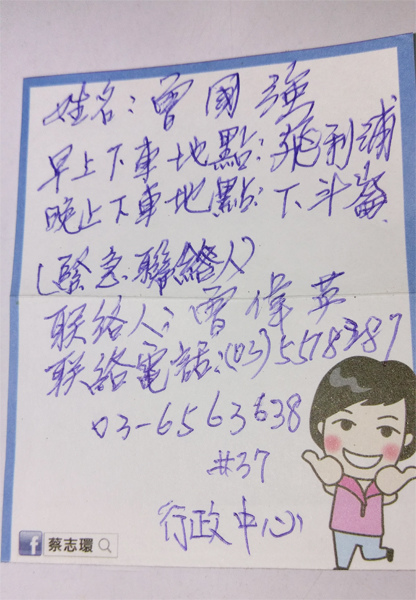 姓名:曾國強
早上下車地點:飛利浦
晚上下車地點:下斗崙
(緊急聯絡人)
联络人:曾偉英
联络電話:(03)5578387
03-6563638
#37
行政中心
蔡志環